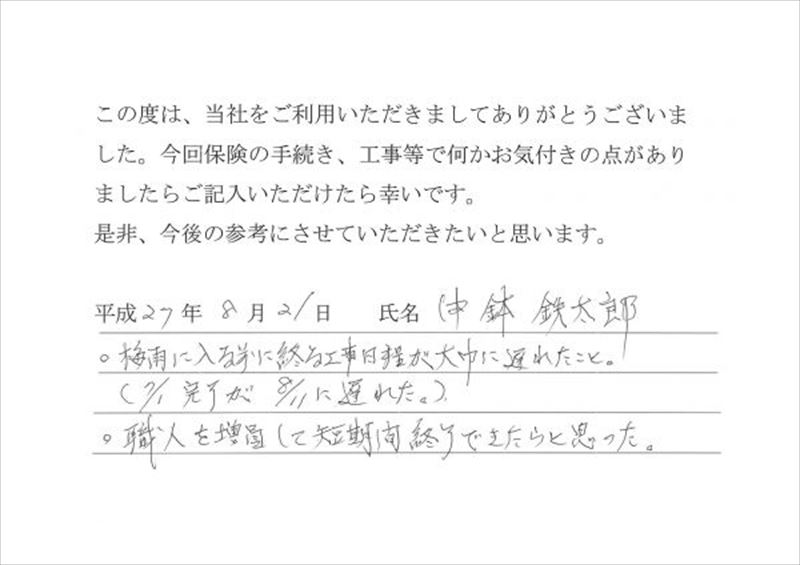 この度は、当社をご利用いただきましてありがとうございま
した。今回保険の手続き、工事等で何かお気付きの点があり
ましたらご記入いただけたら幸いです。
是非、今後の参考にさせていただきたいと思います。
平成27年 8月21日 氏名 仲鉢 鉄太郎
○梅雨に入る前に終る工事日程が大巾に遅れたこと。
(7/1 完了が 8/11に遅れた。)
○職人を増員して短期間終了できたらと思った。